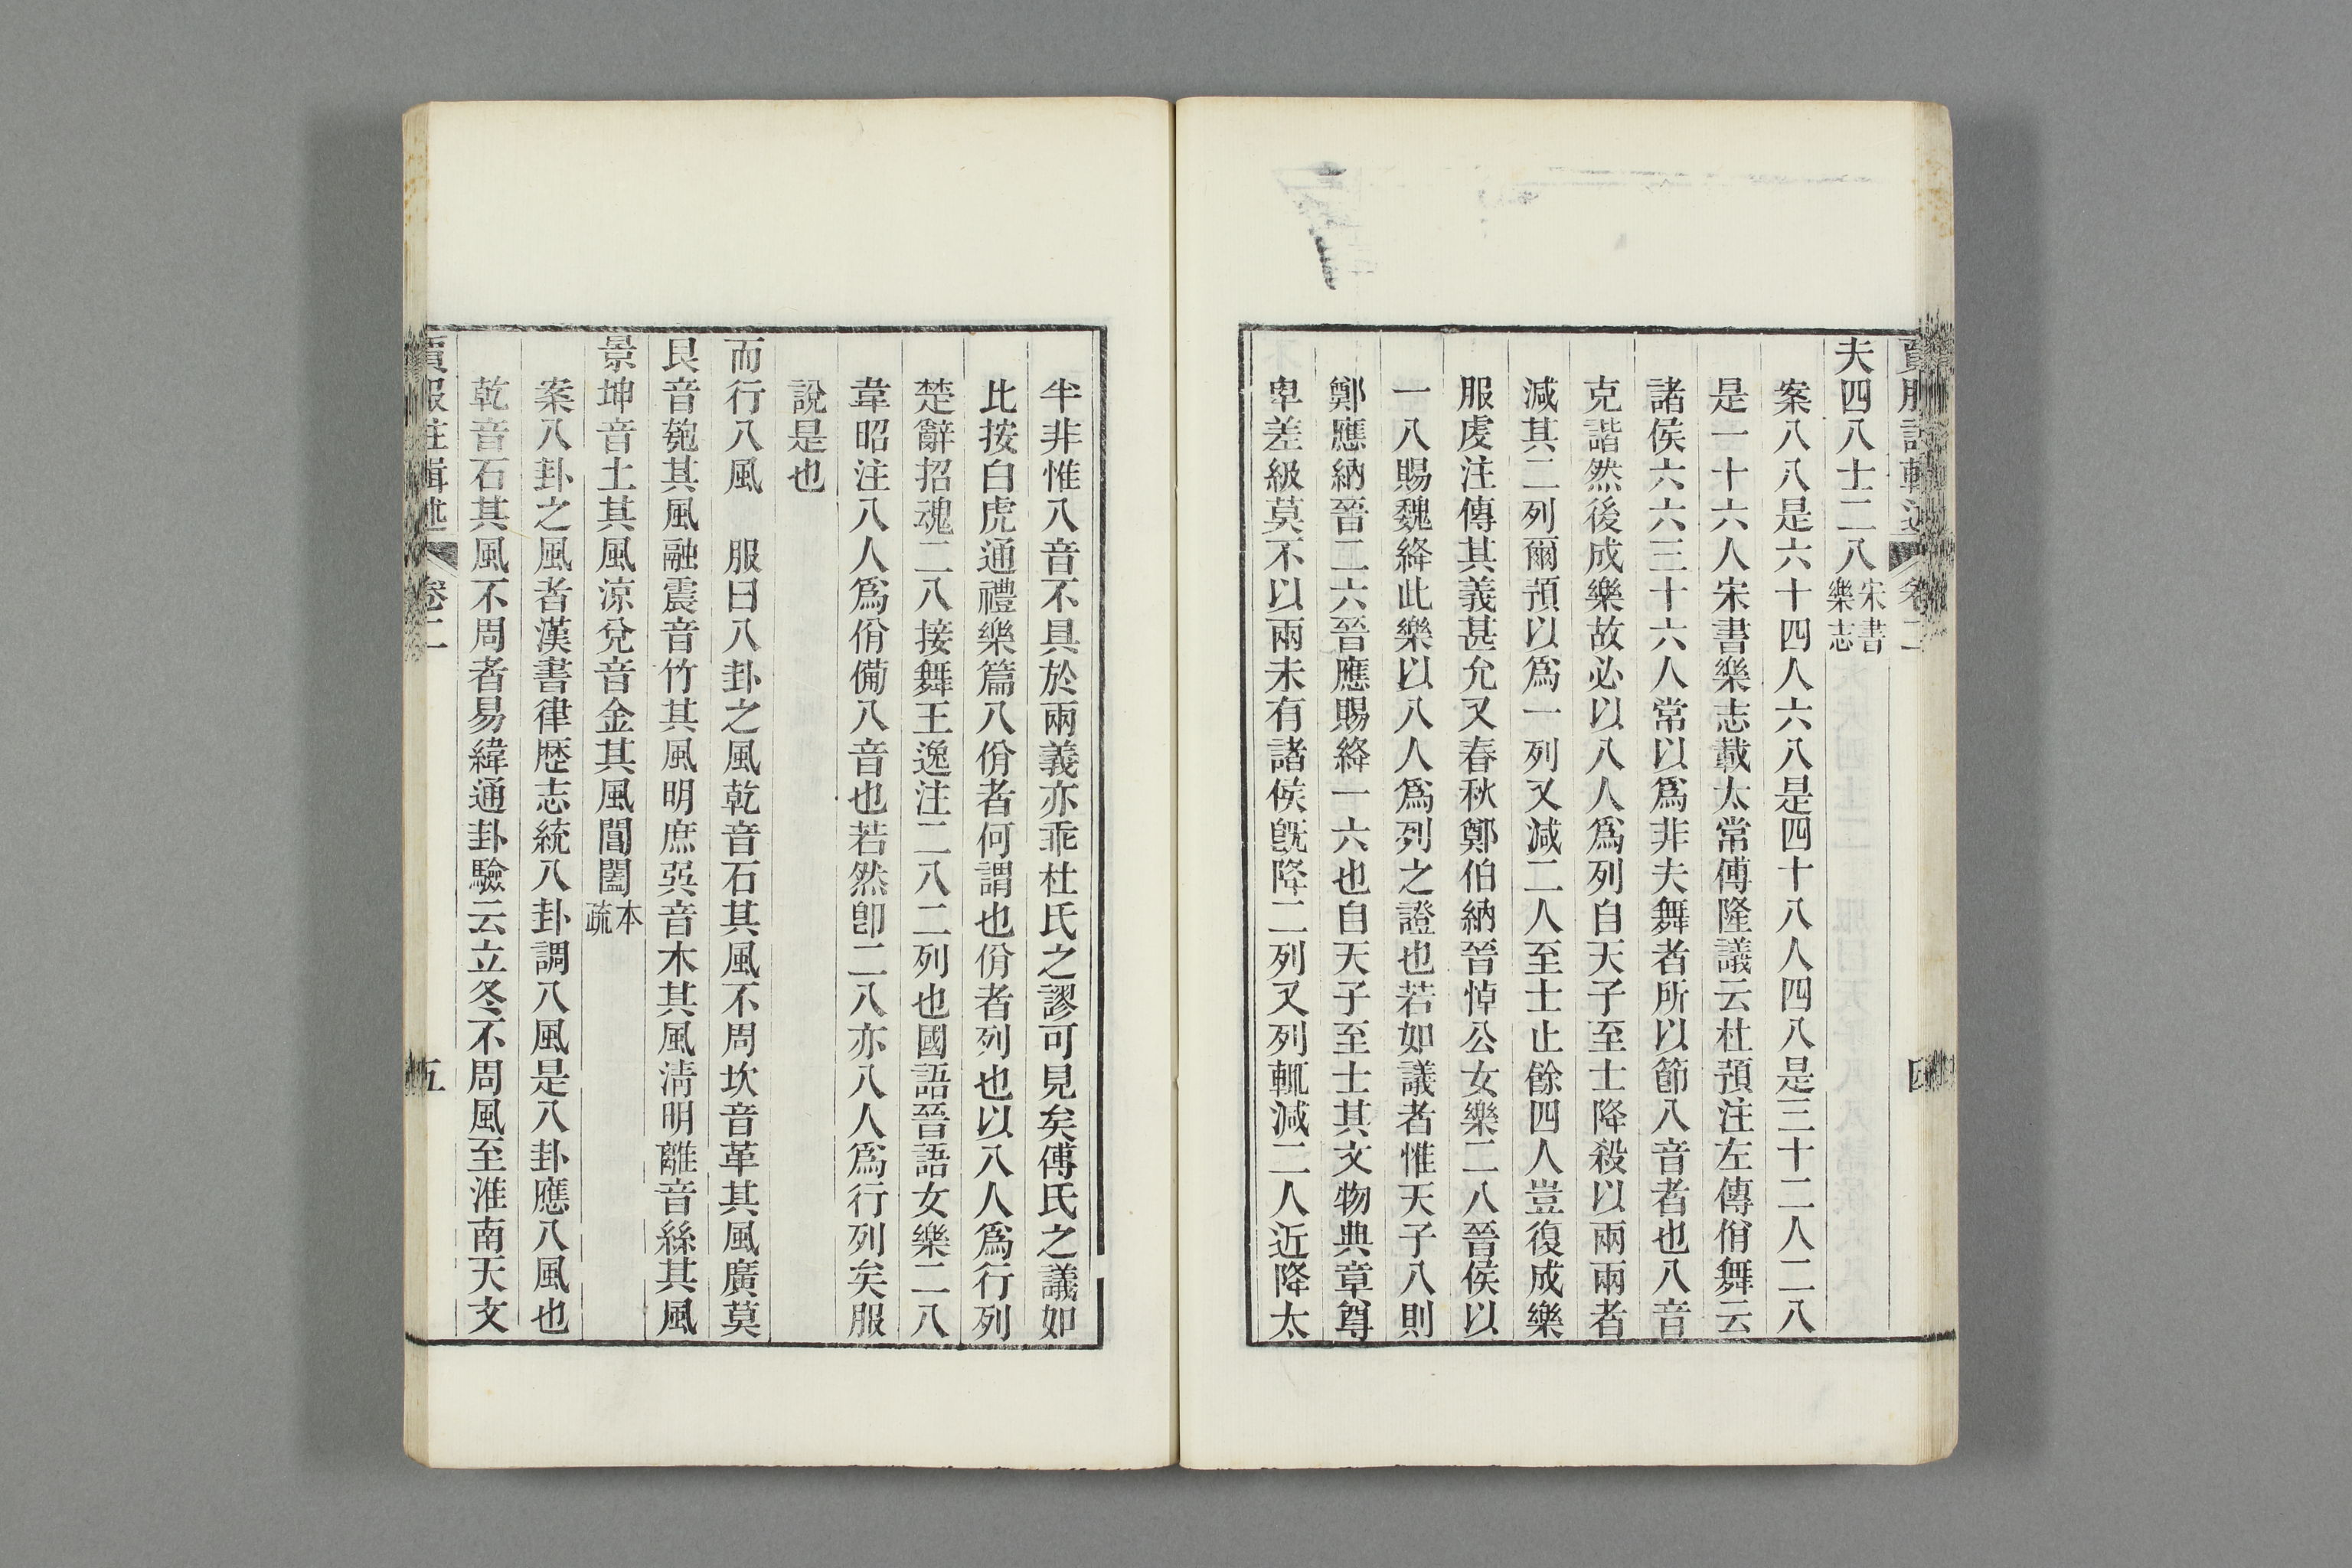 夫四八士二八宋書樂志
案八八是六十四人六八是四十八人四八是三十二人二八
是一十六人宋書樂志載太常傅隆議云杜預注左傳佾舞云
諸侯六六三十六人常以爲非夫舞者所以節八音者也八音
克諧然後成樂故必以八人爲列自天子至士降殺以兩兩者
減其二列爾預以爲一列又減二人至士止餘四人豈復成樂
服虔注傳其義甚允又春秋鄭伯納晉悼公女樂二八晉侯以
一八賜魏絳此樂以八人爲列之證也若如議者惟天子八則
鄭應納晉二六晉應賜絳一六也自天子至士其文物典章尊
卑差級莫不以兩未有諸侯旣降二列又列輒減二人近降太
半非惟八音不具於兩義亦乖杜氏之謬可見矣傅氏之議如
比按白虎通禮樂篇八佾者何謂也佾者列也以八人爲行列
楚辭招魂二八接舞王逸注二八二列也國語晉語女樂二八
韋昭注八人爲佾備八音也若然卽二八亦八人爲行列矣服
說是也
而行八風　服曰八卦之風乾音石其風不周坎音革其風廣莫
艮音匏其風融震音竹其風明庶巽音木其風淸明離音絲其風
景坤音土其風涼兌音金其風閶闔本疏
案八卦之風者漢書律歷志統八卦調八風是八卦應八風也
乾音石其風不周者易緯通卦驗云立冬不周風至淮南天文
賈服註輯述　卷二　五